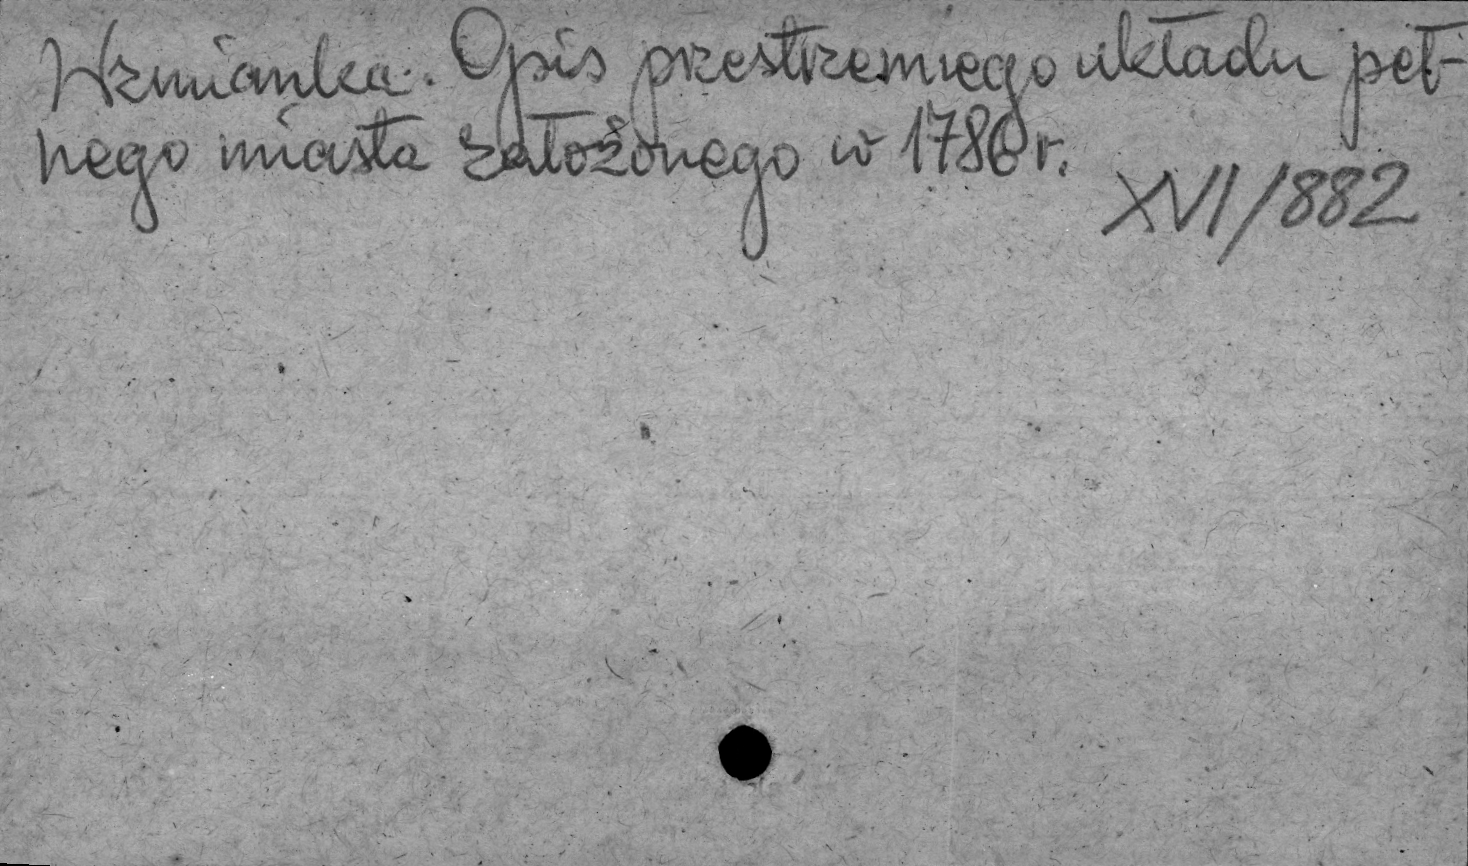 Wzmianka. Opis przestrzennego układu peł-
nego miasta założonego w 1786 r.
XVI/882